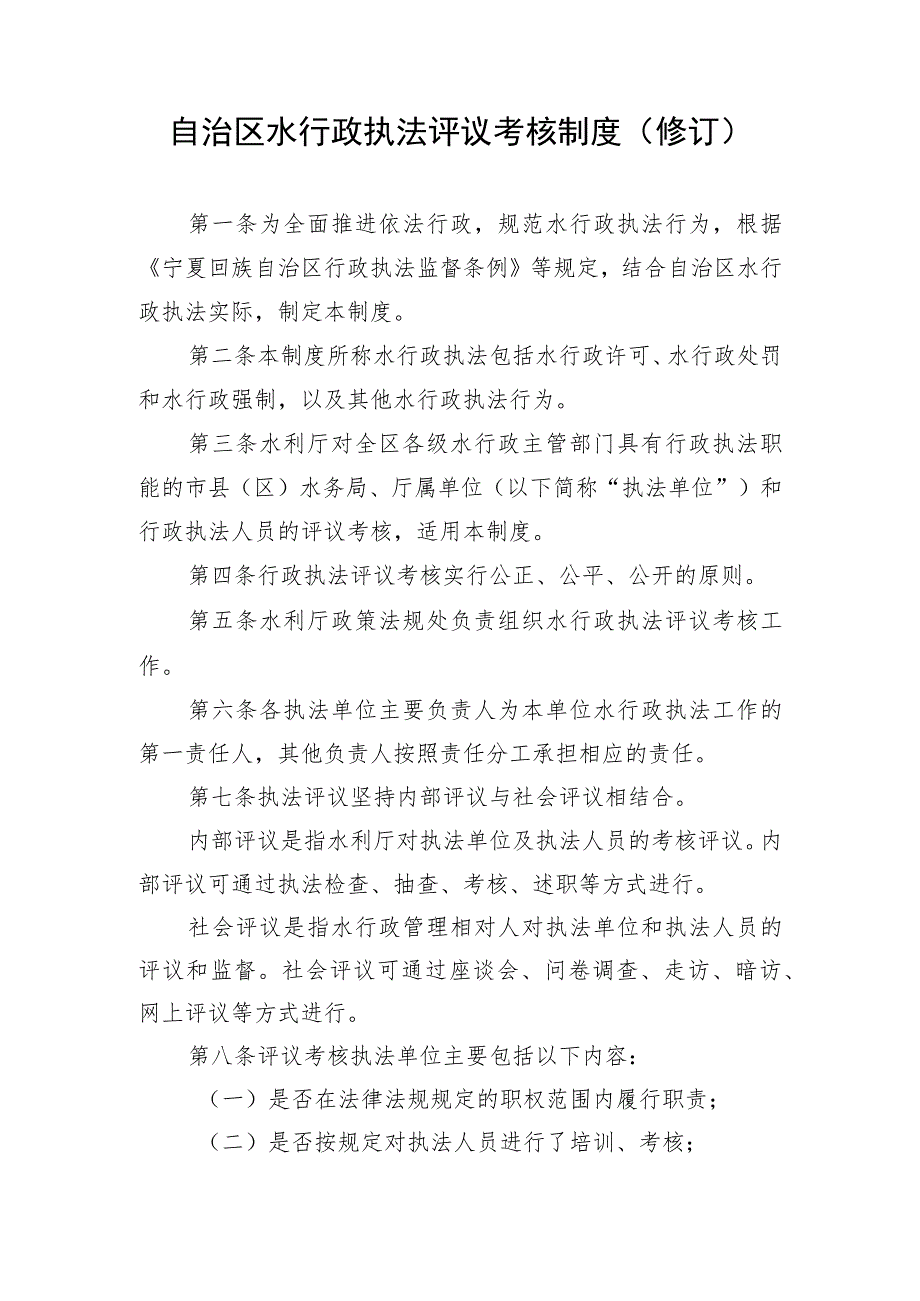 自治区水行政执法评议考核制度（修订）
第一条为全面推进依法行政，规范水行政执法行为，根据
《宁夏回族自治区行政执法监督条例》等规定，结合自治区水行
政执法实际，制定本制度。
第二条本制度所称水行政执法包括水行政许可、水行政处罚
和水行政强制，以及其他水行政执法行为。
第三条水利厅对全区各级水行政主管部门具有行政执法职
能的市县（区）水务局、厅属单位（以下简称“执法单位”）和
行政执法人员的评议考核，适用本制度。
第四条行政执法评议考核实行公正、公平、公开的原则。
第五条水利厅政策法规处负责组织水行政执法评议考核工
作。
第六条各执法单位主要负责人为本单位水行政执法工作的
第一责任人，其他负责人按照责任分工承担相应的责任。
第七条执法评议坚持内部评议与社会评议相结合。
内部评议是指水利厅对执法单位及执法人员的考核评议。内
部评议可通过执法检查、抽查、考核、述职等方式进行。
社会评议是指水行政管理相对人对执法单位和执法人员的
评议和监督。社会评议可通过座谈会、问卷调查、走访、暗访、
网上评议等方式进行。
第八条评议考核执法单位主要包括以下内容：
（一）是否在法律法规规定的职权范围内履行职责；
（二）是否按规定对执法人员进行了培训、考核；